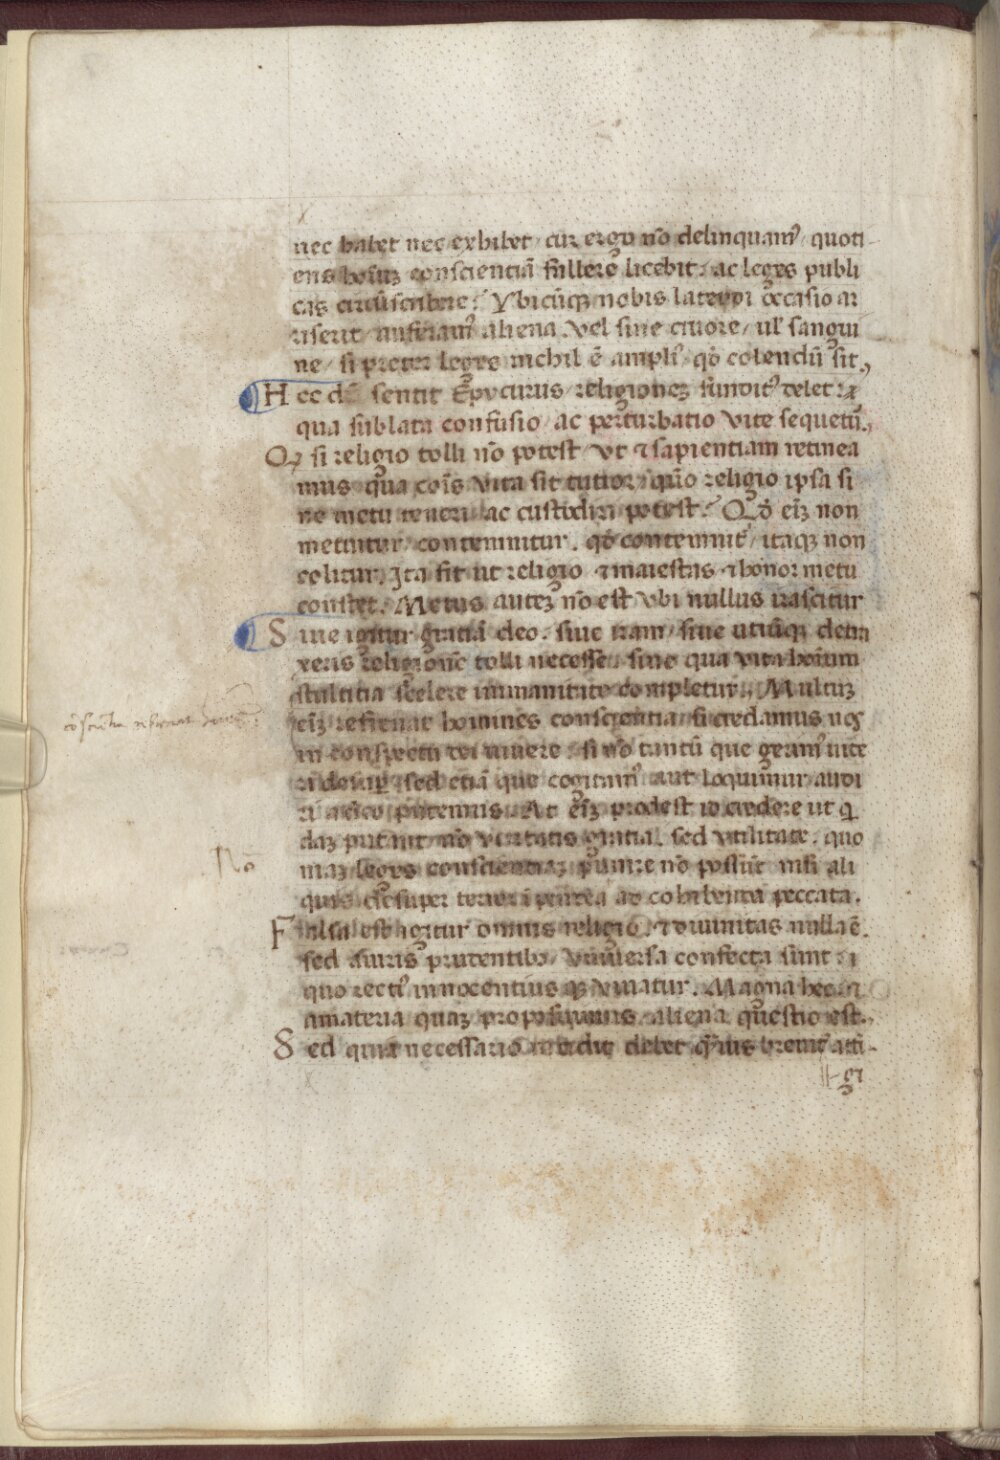 nec habet nec exhibet / cur ergo nō delinquam⁹ / quoti-
ens hoīuꝫ conscienciā fallere licebit : ac leges publi
cas circūscribere ? Vbicūqꝫ nobis latendi occasio ar
riserit / auferam⁹ aliena vel sine cruore / ul' sangui
ne / si preter leges nichil ē ampli⁹ qđ colendū sit.,
Hec dū sentit Epycurus / religioneꝫ fūndit⁹ delet :
qua sublata confusio / ac perturbatio vite sequetur.,
Qꝫ si religio tolli nō potest / vt ⁊ sapientiam retinea
mus qua
cōis vita sit tutior / quō religio ipsa si
ne metu teneri / ac custodiri potest ? Qđ eīꝫ non
metuitur / contemnitur . qđ contemnit᷑ / itaqꝫ non
colitur. Ita fit ut religio ⁊ maiestas ⁊ honor metu
constet. Metus auteꝫ nō est vbi nullus irascitur
Siue igitur gratiā deo . siue iram / siue utrūqꝫ detra
xeris religionē tolli necesse / sine qua vita hoīum
stultitia scelere immanitate completur. Multuꝫ
eīꝫ refrenat homines conscientia / si credamus nos
in conspectu dei viuere / si nō tantū que geram⁹ uide
ri desup̄ / sed etiā que cogitam⁹ aut loquimur audi
ri a deo putemus. At eīꝫ prodest id credere ut q̄
daꝫ putant nō veritatis gratia / sed vtilitate . quo
niaꝫ leges conscientiaꝫ punire nō possūt nisi ali
quis desuper terror
ad cohibenda peccata.
Falsa est igitur omnis religio . ⁊ diuinitas nulla ē.
sed a uiris prudentibꝫ vniuersa conficta sunt :
quo recti⁹ innocentius qꝫ viuatur. Magna hec ⁊
amateria quaꝫ proposuimus aliena questio est.,
Sed quia necessario incidit debet q̄uis breuit᷑ atti-
gi